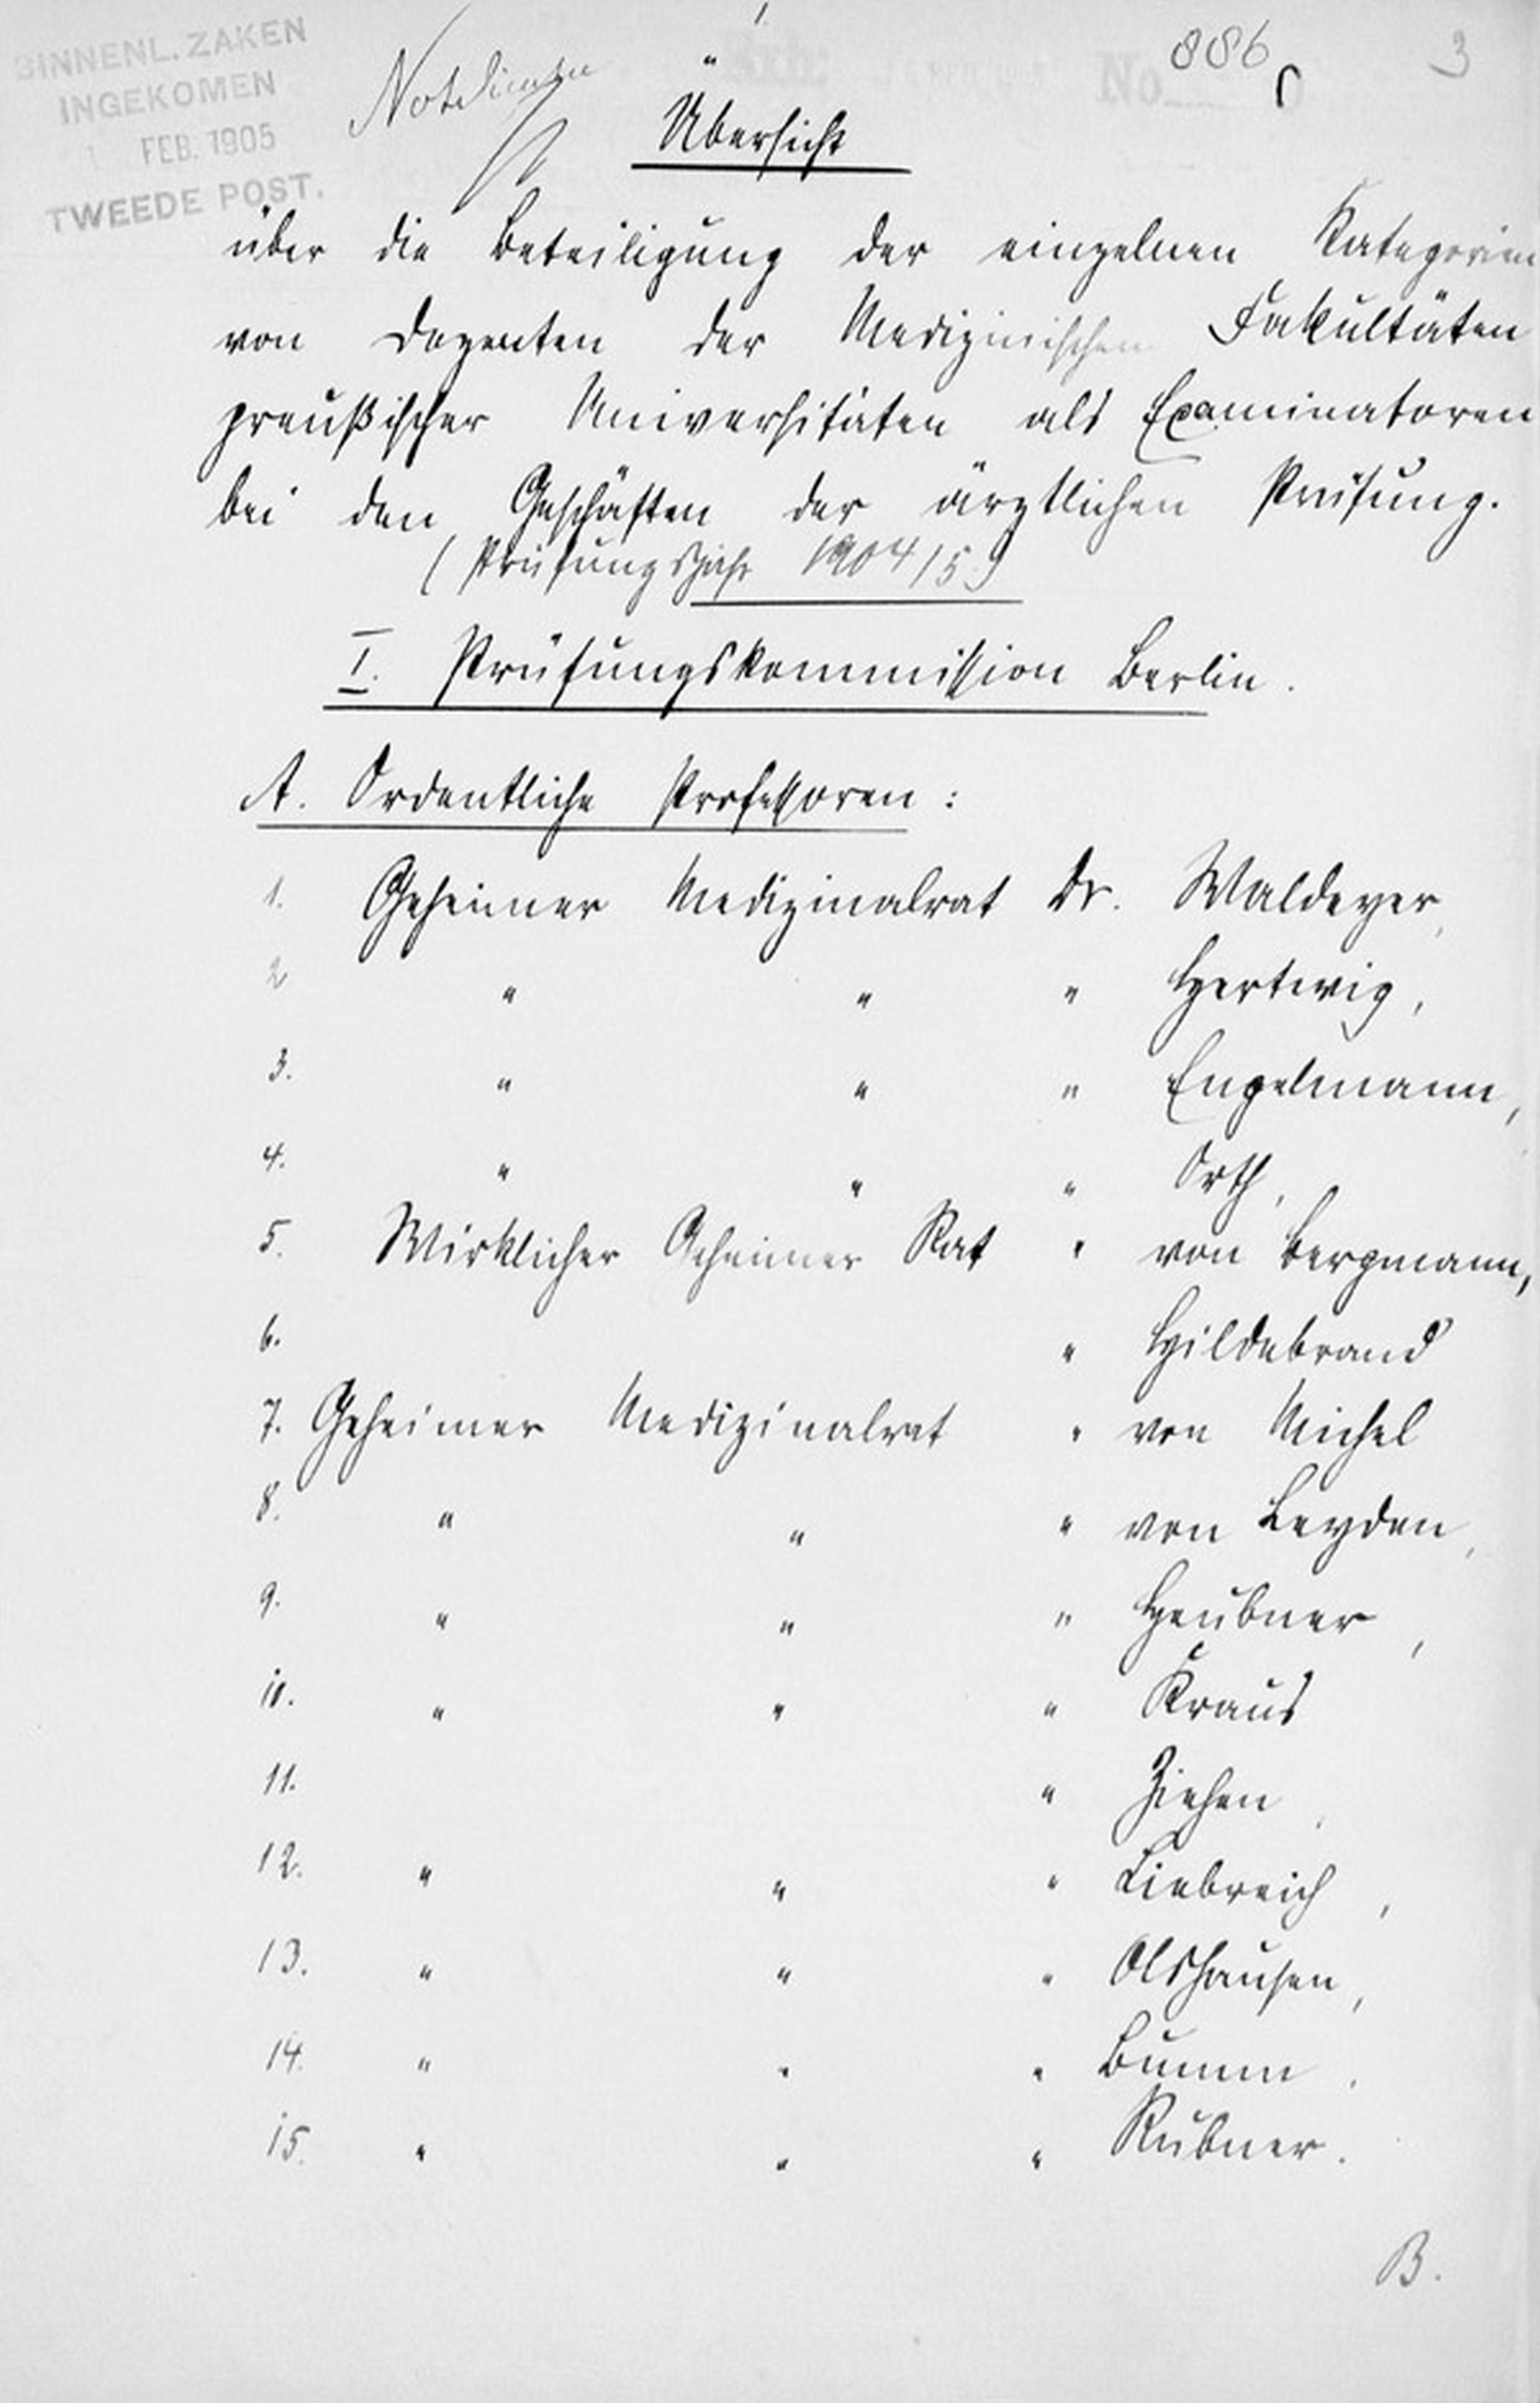 BINNENL. ZAKEN
INGEKOMEN
FEB. 1905
TWEEDE POST.
No 886
3
Übersicht
über die Beteiligung der einzelnen Kategorien
von Dozenten der Medizinischen Fakultäten
preußischer Universitäten als Examinatoren
bei den Geschäften der ärztlichen Prüfung.
(Prüfungsjahr 1904/5.)
I. Prüfungskommission Berlin.
A. Ordentliche Professoren:
1. Geheimer Medizinalrat Dr. Waldeyer,
2 " " " Hertwig,
3. " " " Engelmann,
4. " " " Orth,
5. Wirklicher Geheimer Rat " von Bergmann,
6. " Hildebrand
7. Geheimer Medizinalrat " von Michel
8. " " " von Leyden,
9. " " " Heubner,
10. " " " Kraus
11. " Ziehen,
12. " " " Liebreich,
13. " " " Olshausen,
14. " " " Bumm,
15. " " " Rubner.
B.